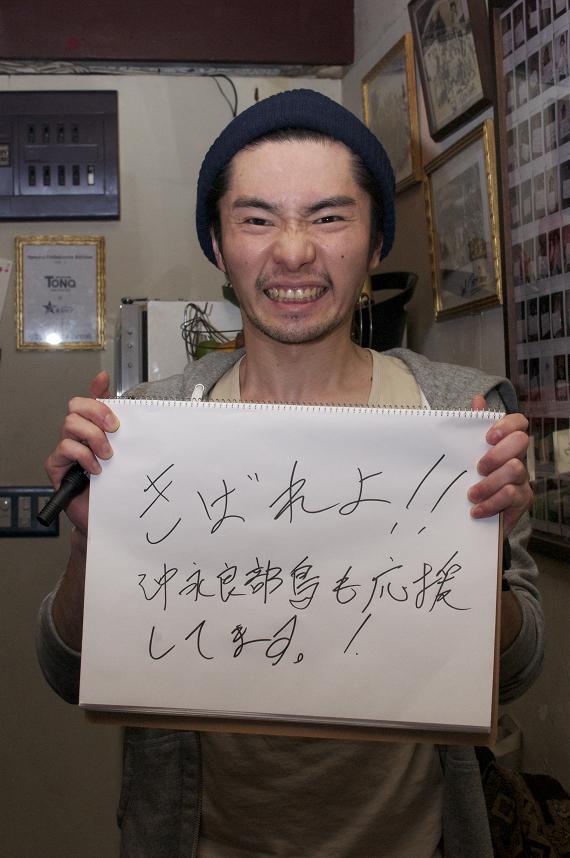 TONA
きばれよ!!
沖永良部島も応援
してます。!